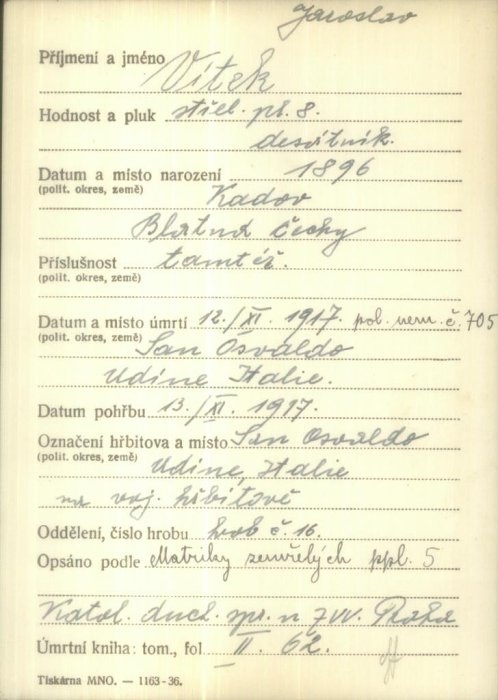 Jaroslav
Příjmení a jméno Vítek
Hodnost a pluk střel. pl. 8.
desátník.
Datum a místo narození 1896
(polit. okres, země) Kadov
Blatná Čechy
Příslušnost tamtéž.
(polit. okres, země)
Datum a místo úmrtí 12./XI. 1917. pol. nem. č. 705
(polit. okres, země) San Osvaldo
Udine Italie.
Datum pohřbu 13./XI. 1917.
Označení hřbitova a místo San Osvaldo
(polit. okres, země) Udine, Italie
na voj. hřbitově
Oddělení, číslo hrobu hrob č. 16.
Opsáno podle Matriky zemřelých ppl. 5
Katol. duch. spr. n ZVV. Praha
Úmrtní kniha: tom., fol II. 62.
Tiskárna MNO. — 1163-36.